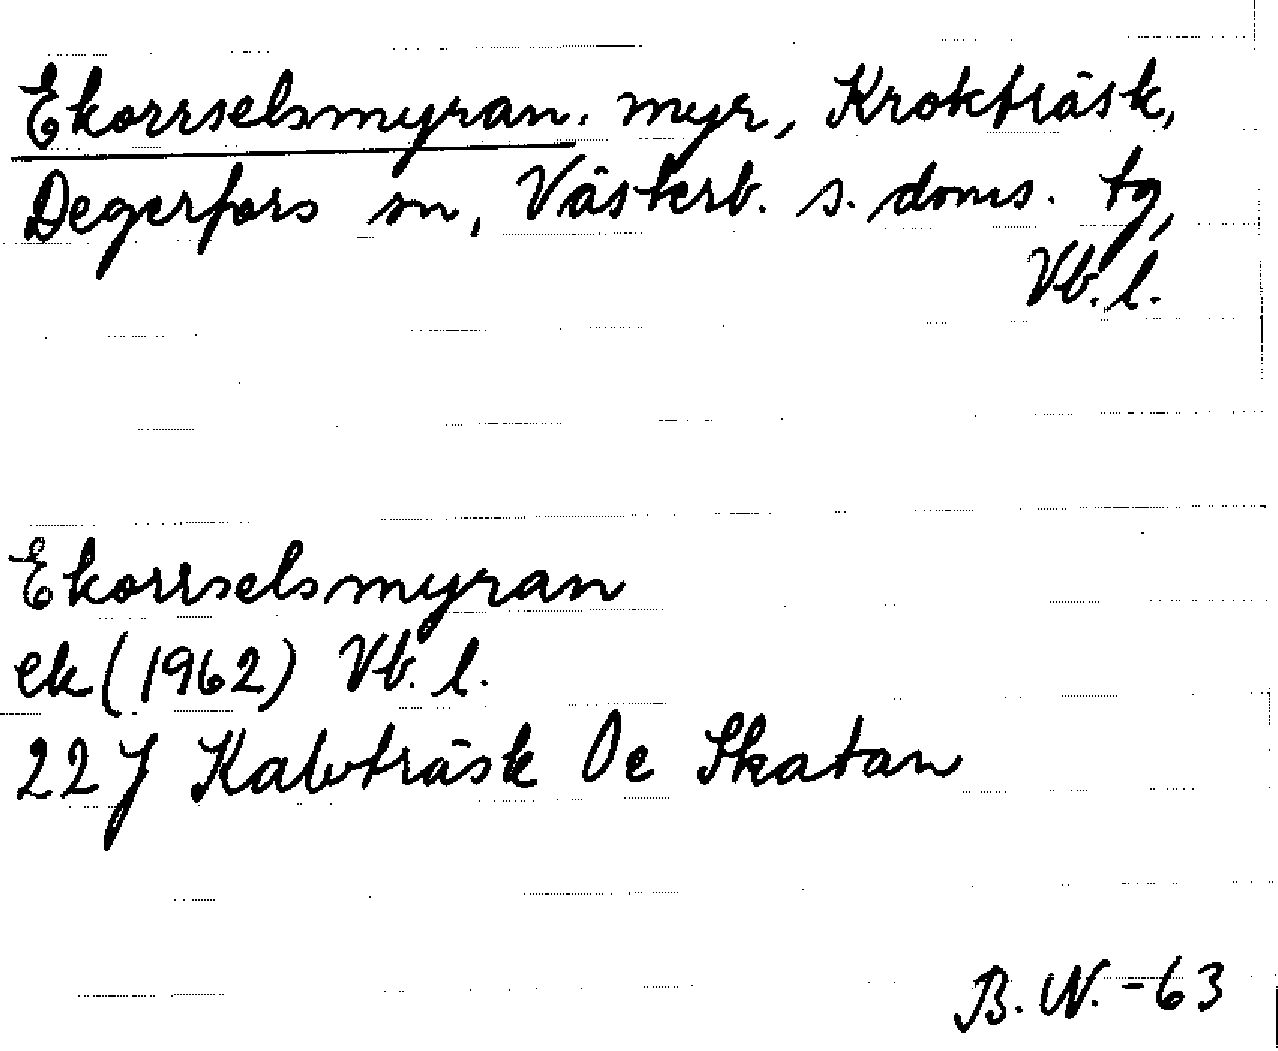 Ekorrselsmyran. myr, Krokträsk,
Degerfors sn, Västerb. s. doms. tg,
Vb. l.
Ekorrselsmyran
ek (1962) Vb. l.
22 J Kalvträsk 0 e Skatan
B. N. -63